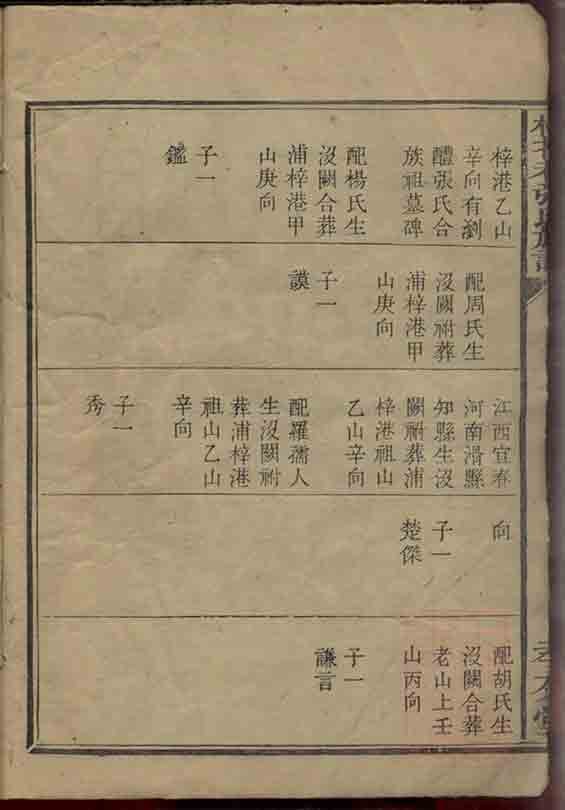 梓港乙山
辛向有劉
醴張氏合
族祖墓碑
配楊氏生
沒闕合葬
浦梓港甲
山庚向
子一
鑑
配周氏生
沒闕祔葬
浦梓港甲
山庚向
子一
謨
江西宜春
河南滑縣
知縣生沒
闕祔葬浦
梓港祖山
乙山辛向
配羅孺人
生沒闕祔
葬浦梓港
祖山乙山
辛向
子一
秀
向
子一
楚傑
配胡氏生
沒闕合葬
老山上壬
山丙向
子一
謙言